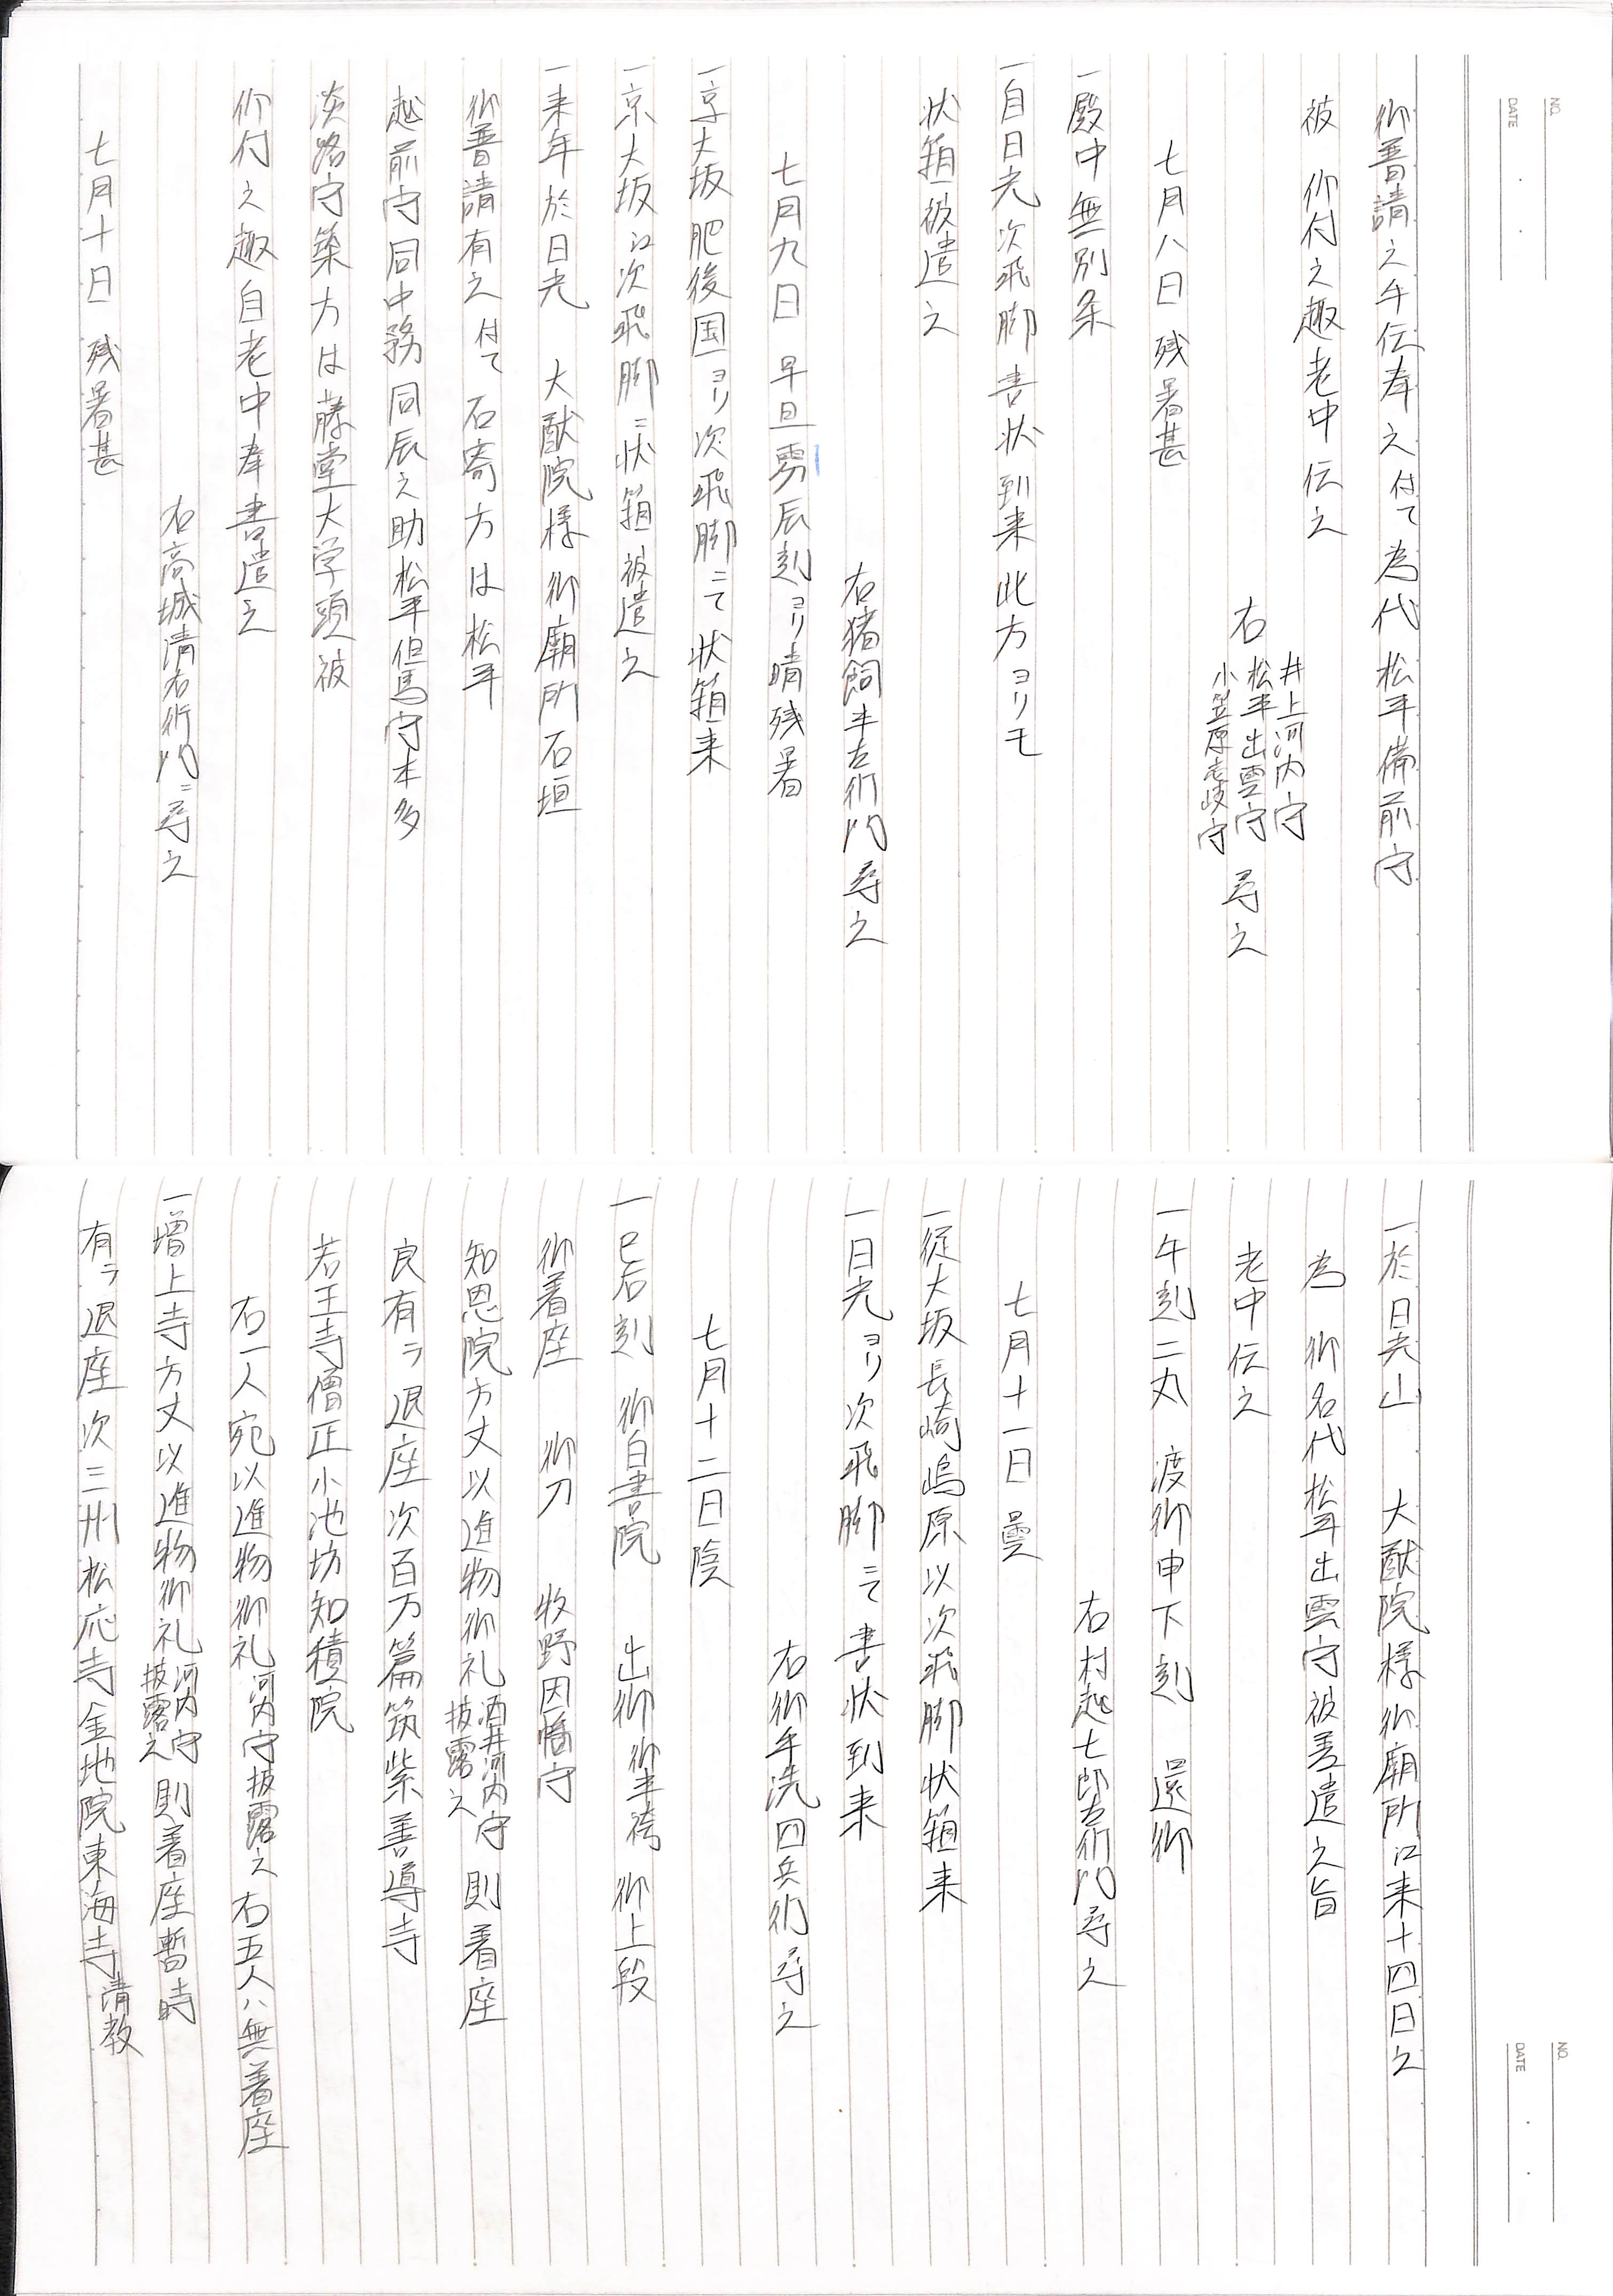 NO.
DATE
御普請之手伝奉之付て為代松平備前守
被 仰付之趣老中 伝之
井上河内守
右 松平出雲守 尋之
小笠原壱岐守
七月八日 残暑甚
一殿中無別条
一自日光次飛脚書状到来此方ヨリモ
状箱被遣之
右猪飼半左衛門尋之
七月九日 早旦雺辰刻ヨリ晴残暑
一京大坂肥後国ヨリ次飛脚ニて状箱来
一京大坂江次飛脚ニ状箱被遣之
一来年於日光 大猷院様御廟所石垣
御普請有之付て石寄方は松平
越前守同中務同辰之助松平但馬守本多
淡路守築方は藤堂大学頭被
仰付之趣自老中奉書遣之
右高城清右衛門ニ尋之
七月十日 残暑甚
NO.
DATE
一於日光山 大猷院様御廟所江来十四日之
為 御名代松平出雲守被差遣之旨
老中伝之
一午刻二丸 渡御申下刻 還御
右村越七郎左衛門尋之
七月十一日 曇
一従大坂長崎嶋原以次飛脚状箱来
一日光ヨリ次飛脚ニて書状到来
右御手洗四兵衛尋之
七月十二日陰
一巳后刻 御白書院 出御御半袴 御上段
御着座 御刀 牧野因幡守
知恩院方丈以進物御礼 酒井河内守披露之 則着座
良有ラ退座次百万篇筑紫善導寺
若王寺僧正小池坊知積院
右一人宛以進物御礼 河内守披露之 右五人ハ無着座
一増上寺方丈以進物御礼 河内守披露之 則着座暫時
有ラ退座次三州松応寺金地院東海寺清教